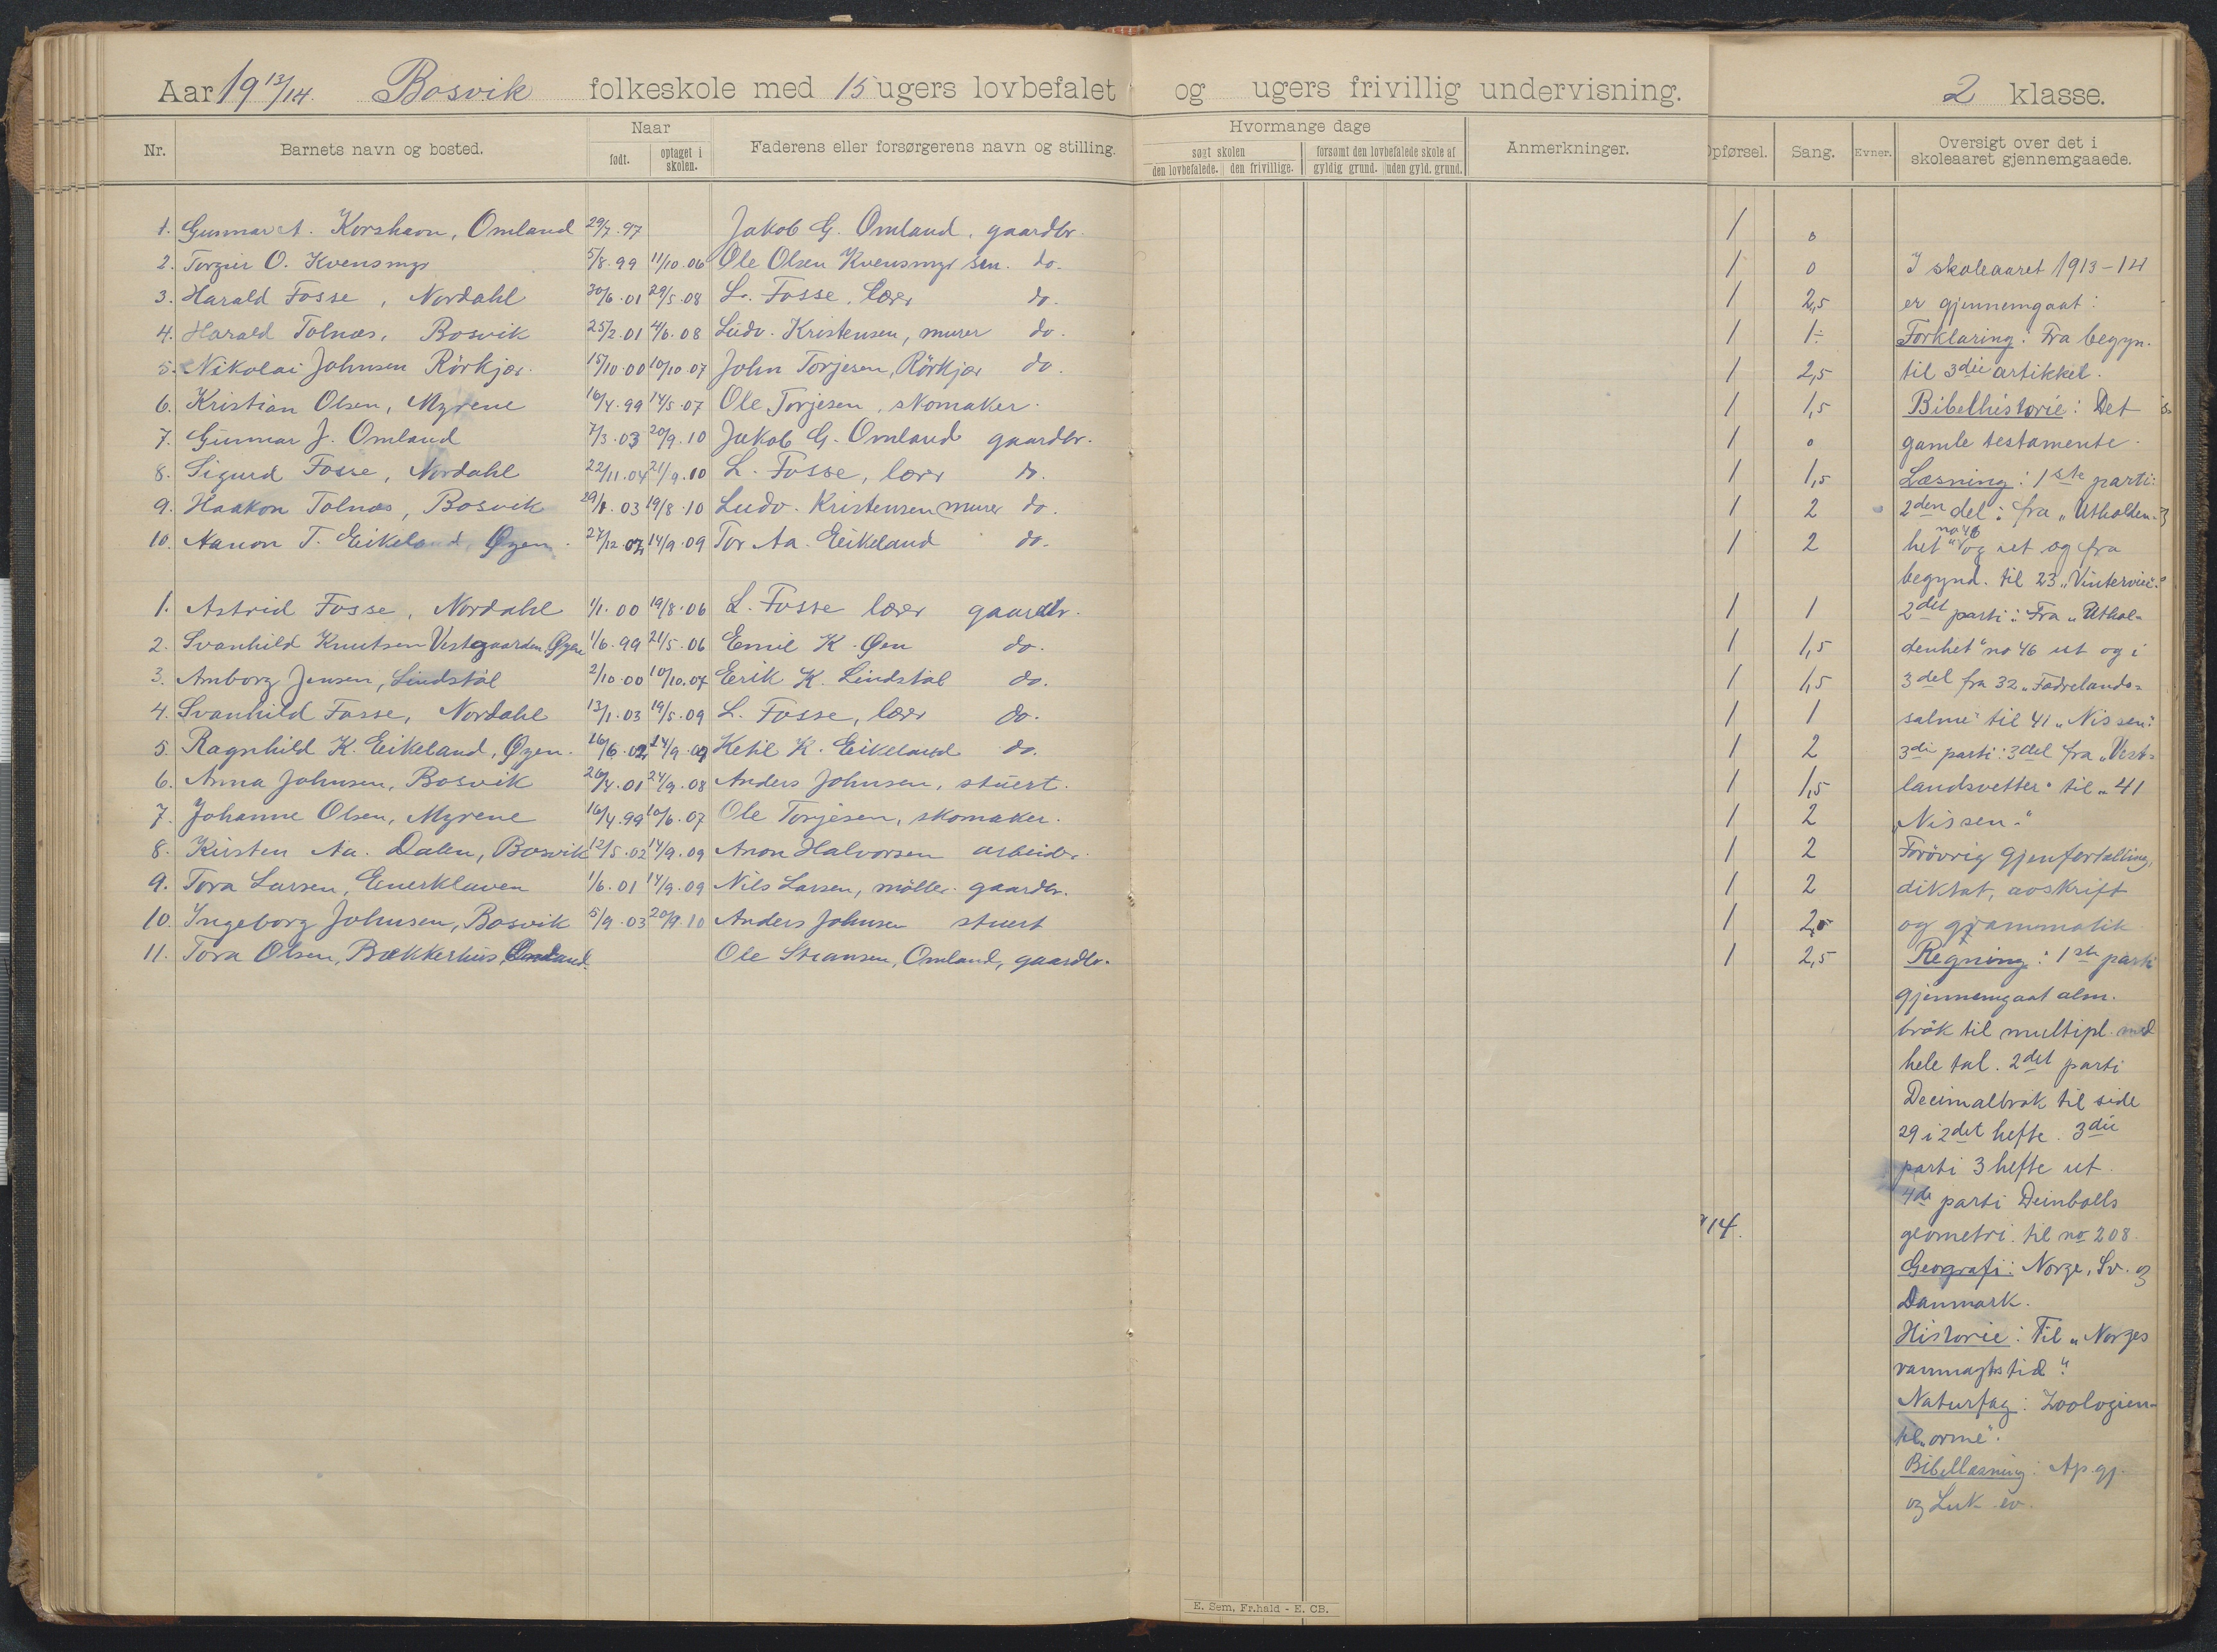 Aar 19 13/14. Bosvik folkeskole med 15 ugers lovbefalet og ugers frivillig undervisning. 2 klasse.
Nr. Barnets navn og bosted. Naar født. optaget i skolen. Faderens eller forsørgerens navn og stilling.
Hvormange dage søgt skolen den lovbefalede. den frivillige. forsømt den lovbefalede skole af gyldig grund. uden gyld. grund. Anmerkninger.
Opførsel. Sang. Evner. Oversigt over det i skoleaaret gjennemgaaede.
1. Gunnar A. Korshavn, Omland 29/7.97 Jakob G. Omland, gaardbr. 1 0
2. Torgeir O. Kvensmyr 5/8.99 11/10.06 Ole Olsen Kvensmyr sen. do. 1 0
3. Harald Fosse, Nordahl 30/6.01 29/5.08 L. Fosse, lærer do. 1 2,5
4. Harald Tolnæs, Bosvik 25/2.01 4/6.08 Ludv. Kristensen, murer do. 1 1÷
5. Nikolai Johnsen Rörkjær. 15/10.00 10/10.07 John Torjesen, Rörkjær do. 1 2,5
6. Kristian Olsen, Myrene 16/4.99 14/5.07 Ole Torjesen, skomaker. 1 1,5
7. Gunnar J. Omland 7/3.03 20/9.10 Jakob G. Omland gaardbr. 1 0
8. Sigurd Fosse, Nordahl 22/11.04 21/9.10 L. Fosse, lærer do. 1 1,5
9. Haakon Tolnæs, Bosvik 29/1.03 19/8.10 Ludv. Kristensen murer do. 1 2
10. Aanon T. Eikeland, Øyen. 27/12.02 14/9.09 Tor Aa. Eikeland do. 1 2
1. Astrid Fosse, Nordahl 1/1.00 19/8.06 L. Fosse lærer gaardbr. 1 1
2. Svanhild Knutsen Vestgaarden, Øyen 1/6.99 21/5.06 Emil K. Øen do. 1 1,5
3. Anborg Jensen, Lindstöl 2/10.00 10/10.07 Erik K. Lindstøl do. 1 1,5
4. Svanhild Fosse, Nordahl 13/1.03 19/5.09 L. Fosse, lærer do. 1 1
5. Ragnhild K. Eikeland, Øyen. 16/6.02 14/9.09 Ketil K. Eikeland do. 1 2
6. Anna Johnsen, Bosvik 26/4.01 24/9.08 Anders Johnsen, stuert. 1 1,5
7. Johanne Olsen, Myrene 16/4.99 10/6.07 Ole Torjesen, skomaker. 1 2
8. Kirsten Aa. Dalen, Bosvik 12/5.02 14/9.09 Anon Halvorsen arbeider. 1 2
9. Tora Larsen, Enerklaven 1/6.01 14/9.09 Nils Larsen, möller. gaardbr. 1 2
10. Ingeborg Johnsen, Bosvik 5/9.03 20/9.10 Anders Johnsen stuert 1 2,5
11. Tora Olsen, Bækkerhus, Omland. Ole Stiansen, Omland, gaardbr. 1 2,5
I skoleaaret 1913-14
er gjennemgaat:
Forklaring: Fra begyn.
til 3die artikkel.
Bibelhistorie: Det
gamle testamente.
Læsning: 1ste parti:
2den del: fra „Utholden-
het" no 46 og ut og fra
begynd. til 23 „Vinterviei."
2det parti: Fra „Uthol-
denhet" no 46 ut og i
3 del fra 32 „Fædrelands-
salme" til 41 „Nissen."
3die parti: 3del fra „Vest-
landsvetter" til „41
„Nissen."
Forövrig gjenfortælling,
diktat, avskrift
og grammatik.
Regning: 1ste parti
gjennemgaat alm.
brök til multipl. med
hele tal. 2det parti
Decimalbrøk til side
29 i 2det hefte. 3die
parti 3 hefte ut.
4de parti Deinbolls
geometri til no 208.
Geografi: Norge, Sv. og
Danmark.
Historie: Til „Norges
vanmagtstid".
Naturfag: Zoologien
til „orme".
Bibellæsning: Ap. gj.
og Luk. ev.
14.
E. Sem, Fr.hald - E. CB.